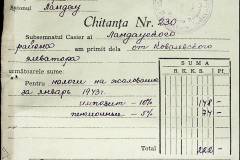 Raionul Ландау
Chitanța Nr. 230
Subsemnatul Casier al Ландауского
района am primit dela от Ковалевского
элеватора
următoarele sume:
Pentru налоги на жалование
за январь 1943г.
импозит - 10%
пенсионные - 5%
SUMA
R. K. K. S. R. Pf.
148 -
74 -
TOTAL 222 -